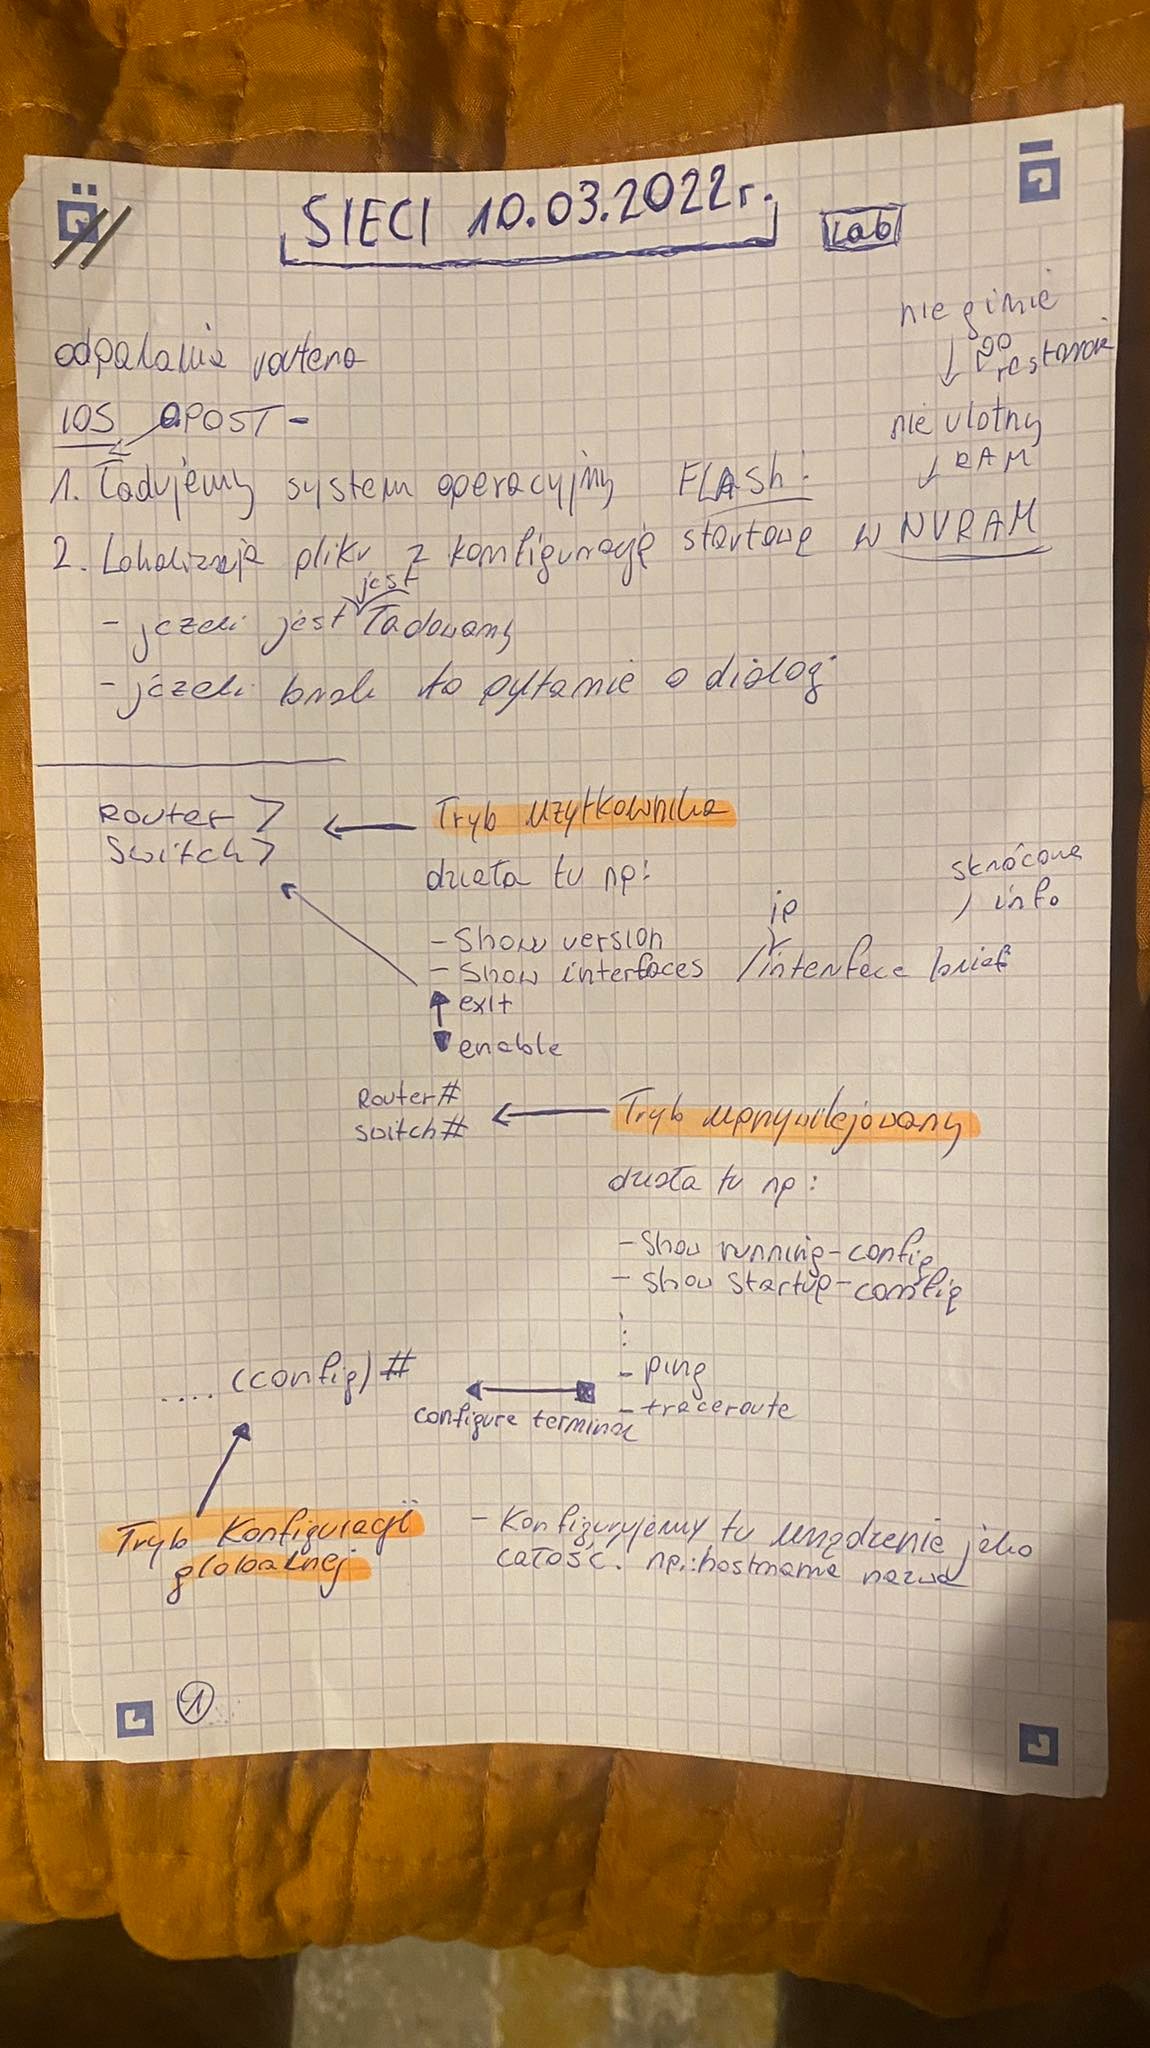 SIECI 10.03.2022r.
Lab
nie ginie
po
restarcie
odpalanie routera
IOS POST -
nie ulotny
RAM
1. Ładujemy system operacyjny FLASH:
2. Lokalizacja pliku z konfiguracją startową w NVRAM
jest
- jeżeli jest ładowany
- jeżeli brak to pytanie o dialog
Router >
Switch >
Tryb użytkownika
działa tu np:
skrócone
info
ip
- Show version
- Show interfaces / interface brief
exit
enable
Router#
Switch#
Tryb uprzywilejowany
działa tu np:
- Show running-config
- Show startup-config
:
- ping
- traceroute
.... (config) #
configure terminal
Tryb Konfiguracji
globalnej
- Konfigurujemy tu urządzenie jako
całość. np.: hostname nazwa
1